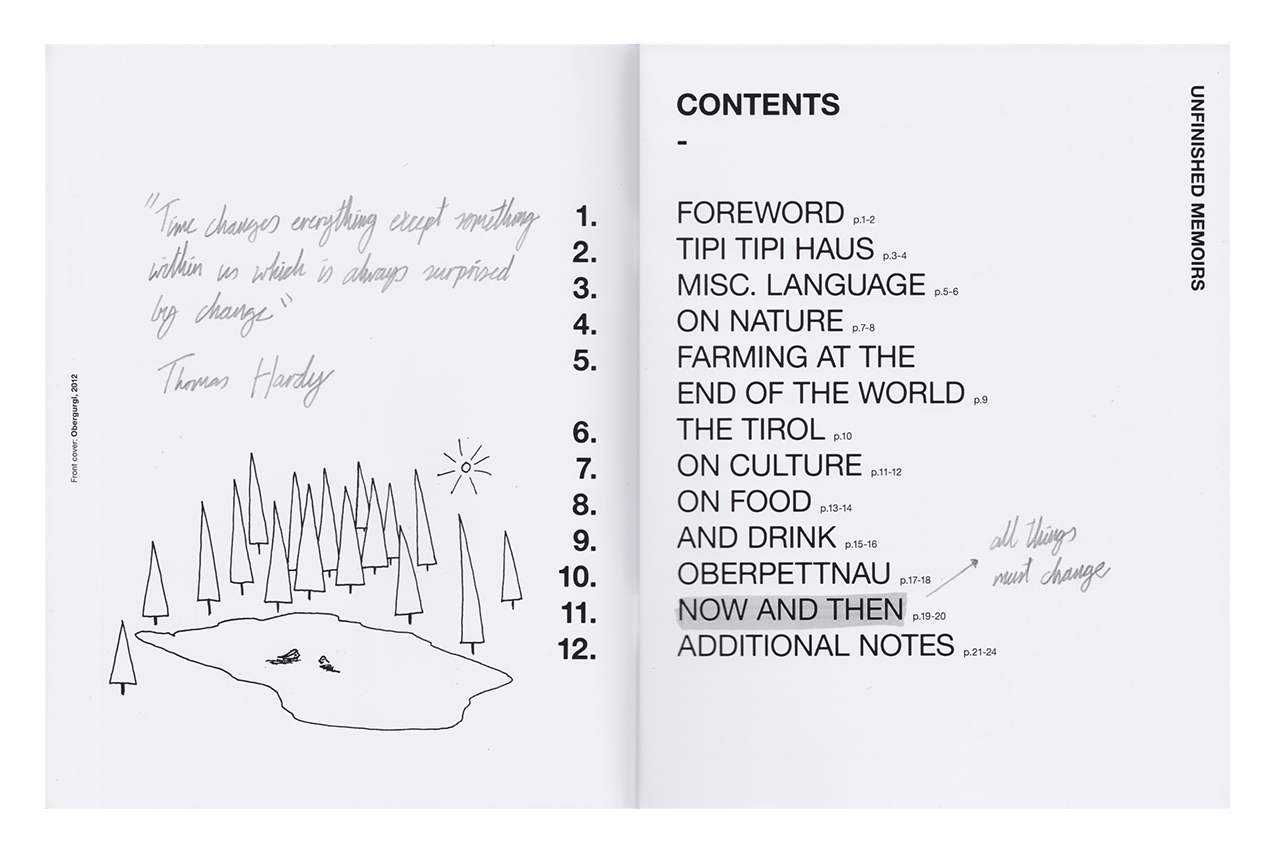 "Time changes everything except something
within us which is always surprised
by change"
Thomas Hardy
Front cover: Obergurgl, 2012
CONTENTS
-
1. FOREWORD p.1-2
2. TIPI TIPI HAUS p.3-4
3. MISC. LANGUAGE p.5-6
4. ON NATURE p.7-8
5. FARMING AT THE
END OF THE WORLD p.9
6. THE TIROL p.10
7. ON CULTURE p.11-12
8. ON FOOD p.13-14
9. AND DRINK p.15-16
10. OBERPETTNAU p.17-18
11. NOW AND THEN p.19-20
12. ADDITIONAL NOTES p.21-24
all things
must change
UNFINISHED MEMOIRS